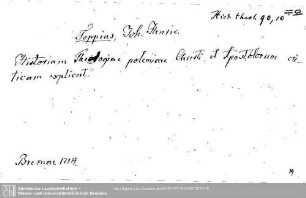 Hist. theol. 90, 10
Foppius, Joh. Henric.
Historiam Theologiae polemicae Christi et Apostolorum cri-
ticam explicat.
Bremae 1717.
Sächsische Landesbibliothek -
Staats- und Universitätsbibliothek Dresden